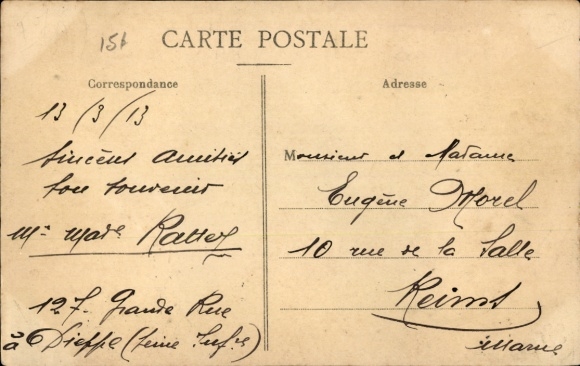 15f
CARTE POSTALE
Correspondance
13/3/13
Sincères amitiés
bon souvenir
Mr Made
127. Grande Rue
à Dieppe (Seine Infre)
Adresse
Monsieur et Madame
Eugène Morel
10 rue de la Salle
Reims
Marne